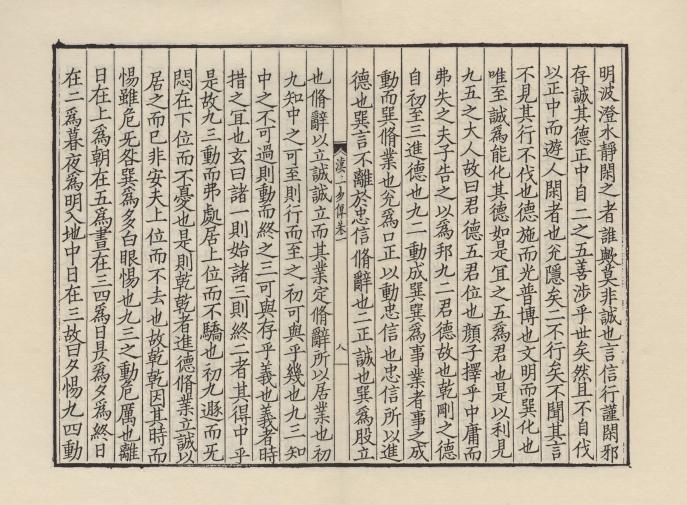 明波澄水靜閑之者誰歟莫非誠也言信行謹閑邪
存誠其德正中自二之五善涉乎世矣然且不自伐
以正中而遊人閑者也兊隱矣二不行矣不聞其言
不見其行不伐也德施而光普博也文明而巽化也
唯至誠爲能化其德如是宜之五爲君也是以利見
九五之大人故曰君德五君位也顔子擇乎中庸而
弗失之夫子告之以爲邦九二君德故也乾剛之德
自初至三進德也九二動成巽巽爲事業者事之成
動而巽脩業也兊爲口正以動忠信也忠信所以進
德也巽言不離於忠信脩辭也二正誠也巽爲股立
漢上易傳卷一
八
也脩辭以立誠誠立而其業定脩辭所以居業也初
九知中之可至則行而至之初可與乎幾也九三知
中之不可過則動而終之三可與存乎義也義者時
措之宜也玄曰諸一則始諸三則終二者其得中乎
是故九三動而弗處居上位而不驕也初九遯而无
悶在下位而不憂也是則乾乾者進德脩業立誠以
居之而已非安夫上位而不去也故乾乾因其時而
惕雖危无咎巽爲多白眼惕也九三之動危厲也離
日在上爲朝在五爲晝在三四爲日昃爲夕爲終日
在二爲暮夜爲明入地中日在三故曰夕惕九四動